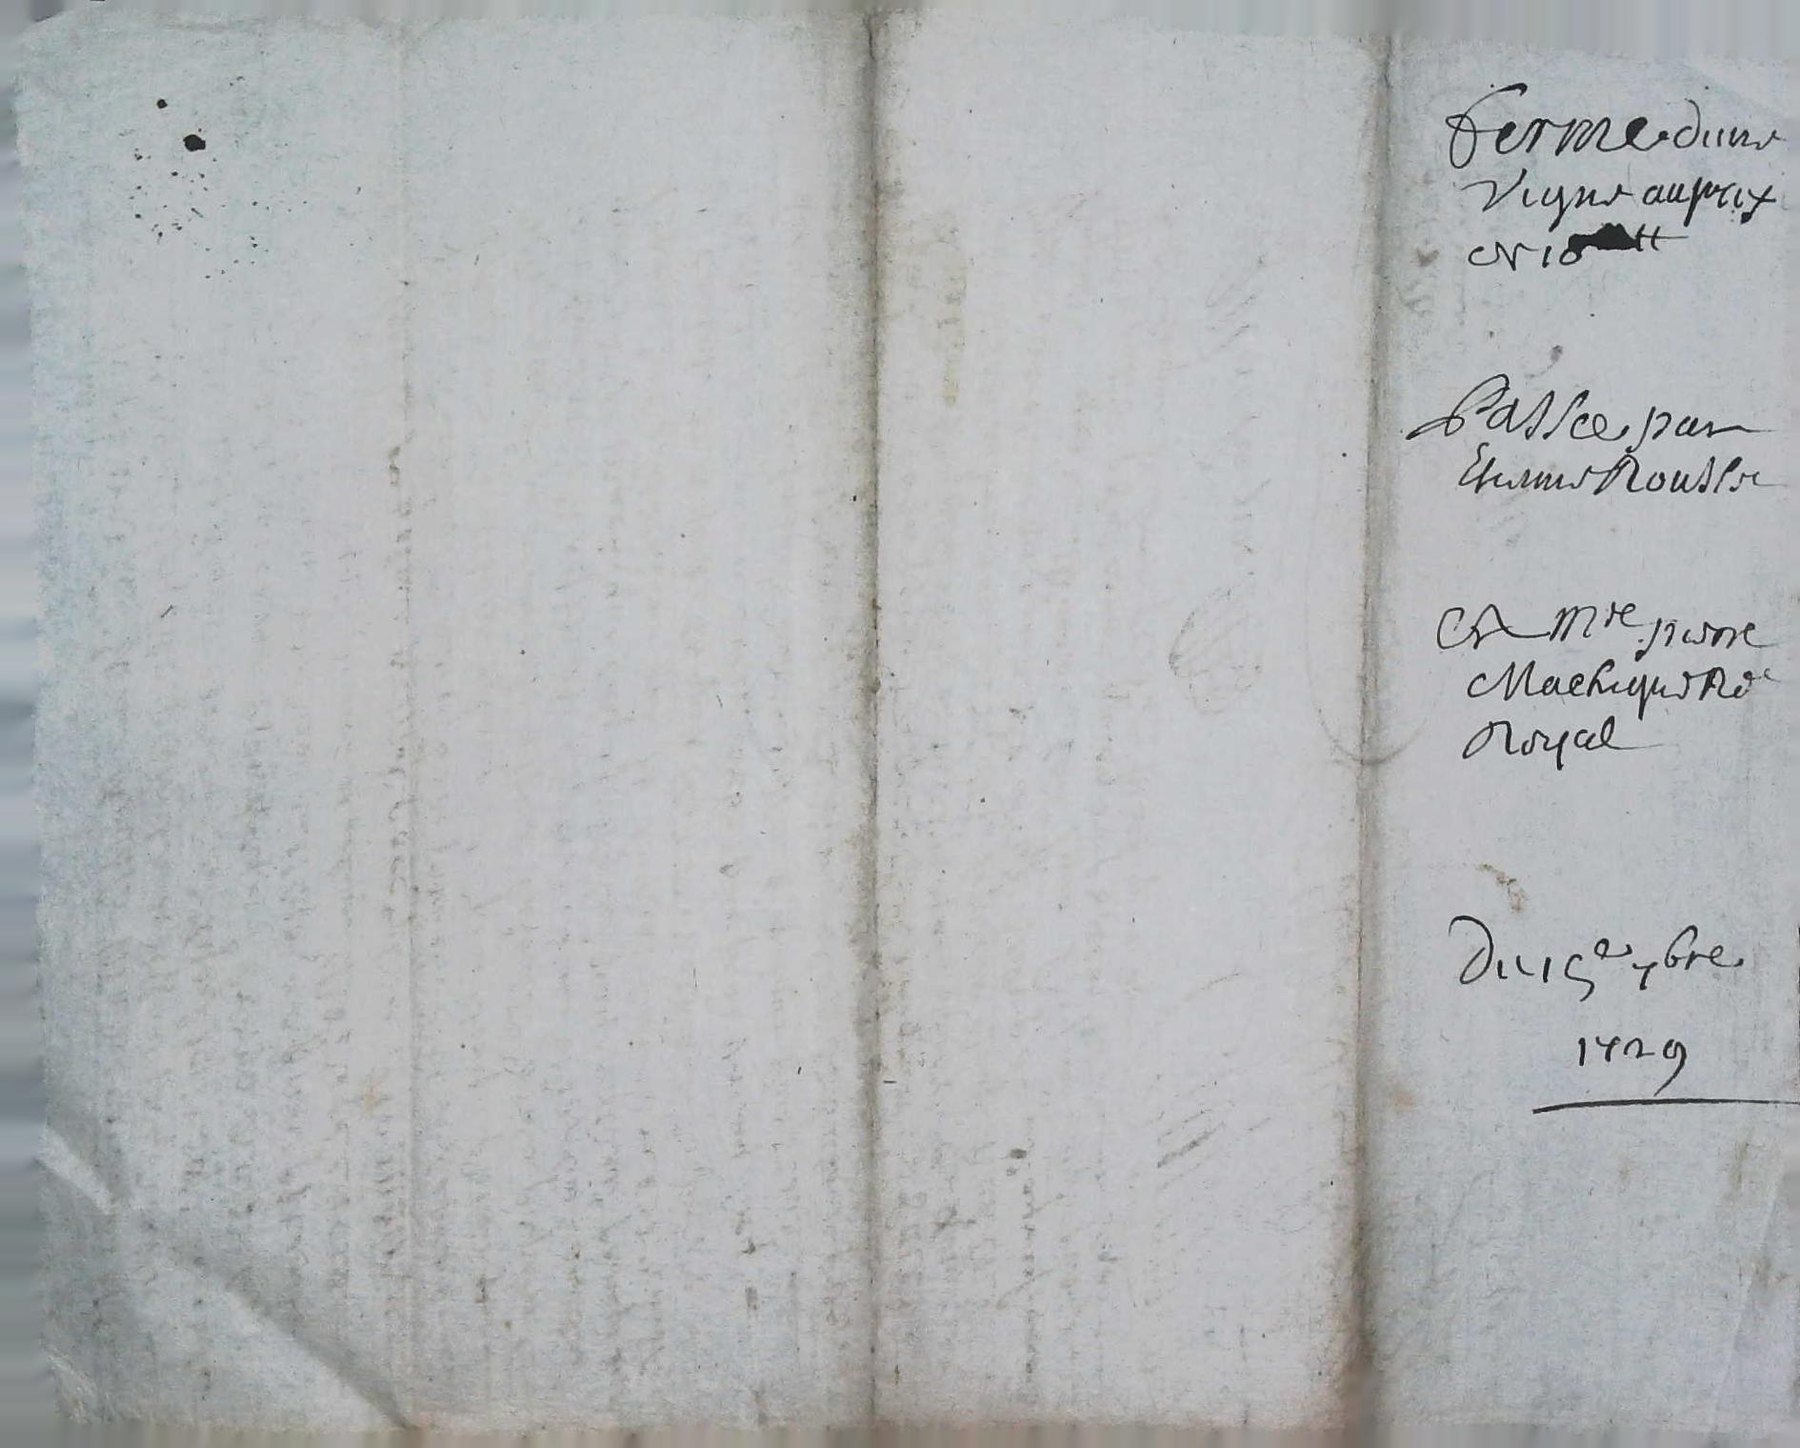 Ferme dune
Vigne au prix
de 10 ₶
Passee par
Etienne Rousse
A Me pierre
Machique No.re
Royal
Du 15e 7bre
1729